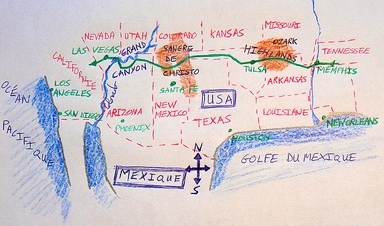 NEVADA
UTAH
COLORADO
KANSAS
MISSOURI
LAS VEGAS
GRAND
CANYON
SANGRE
DE
CHRISTO
OZARK
HIGHLANDS
TENNESSEE
CALIFORNIE
TULSA
MEMPHIS
SANTA FE
ARKANSAS
OCÉAN
PACIFIQUE
LOS
ANGELES
USA
SAN DIEGO
ARIZONA
NEW
MEXICO
TEXAS
LOUISIANE
PHOENIX
HOUSTON
NEW ORLEANS
N
S
MEXIQUE
GOLFE DU MEXIQUE